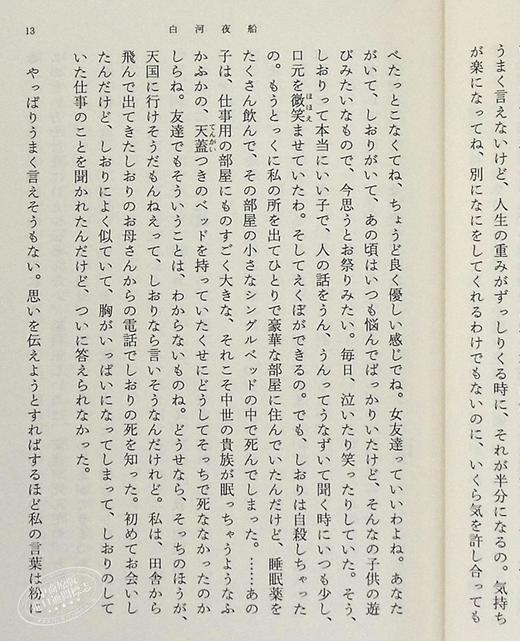 うまく言えないけど、人生の重みがずっしりくる時に、それが半分になるの。気持ち
が楽になってね、別になにをしてくれるわけでもないのに、いくら気を許し合っても
13
白河夜船
べたっとこなくてね、ちょうど良く優しい感じでね。女友達っていいわよね。あなた
がいて、しおりがいて、あの頃はいつも悩んでばっかりいたけど、そんなの子供の遊
びみたいなもので、今思うとお祭りみたい。毎日、泣いたり笑ったりしていた。そう、
しおりって本当にいい子で、人の話をうん、うんってうなずいて聞く時にいつも少し、
口元を微笑ませていたわ。そしてえくぼができるの。でも、しおりは自殺しちゃった
ほほえ
の。もうとっくに私の所を出てひとりで豪華な部屋に住んでいたんだけど、睡眠薬を
たくさん飲んで、その部屋の小さなシングルベッドの中で死んでしまった。……あの
子は、仕事用の部屋にものすごく大きな、それこそ中世の貴族が眠っちゃうようなふ
かふかの、天蓋つきのベッドを持っていたくせにどうしてそっちで死ななかったのか
てんがい
しらね。友達でもそういうことは、わからないものね。どうせなら、そっちのほうが、
天国に行けそうだもんねえって、しおりなら言いそうなんだけれど。私は、田舎から
飛んで出てきたしおりのお母さんからの電話でしおりの死を知った。初めてお会いし
たんだけど、しおりによく似ていて、胸がいっぱいになってしまって、しおりのして
いた仕事のことを聞かれたんだけど、ついに答えられなかった。
やっぱりうまく言えそうもない。思いを伝えようとすればするほど私の言葉は粉に